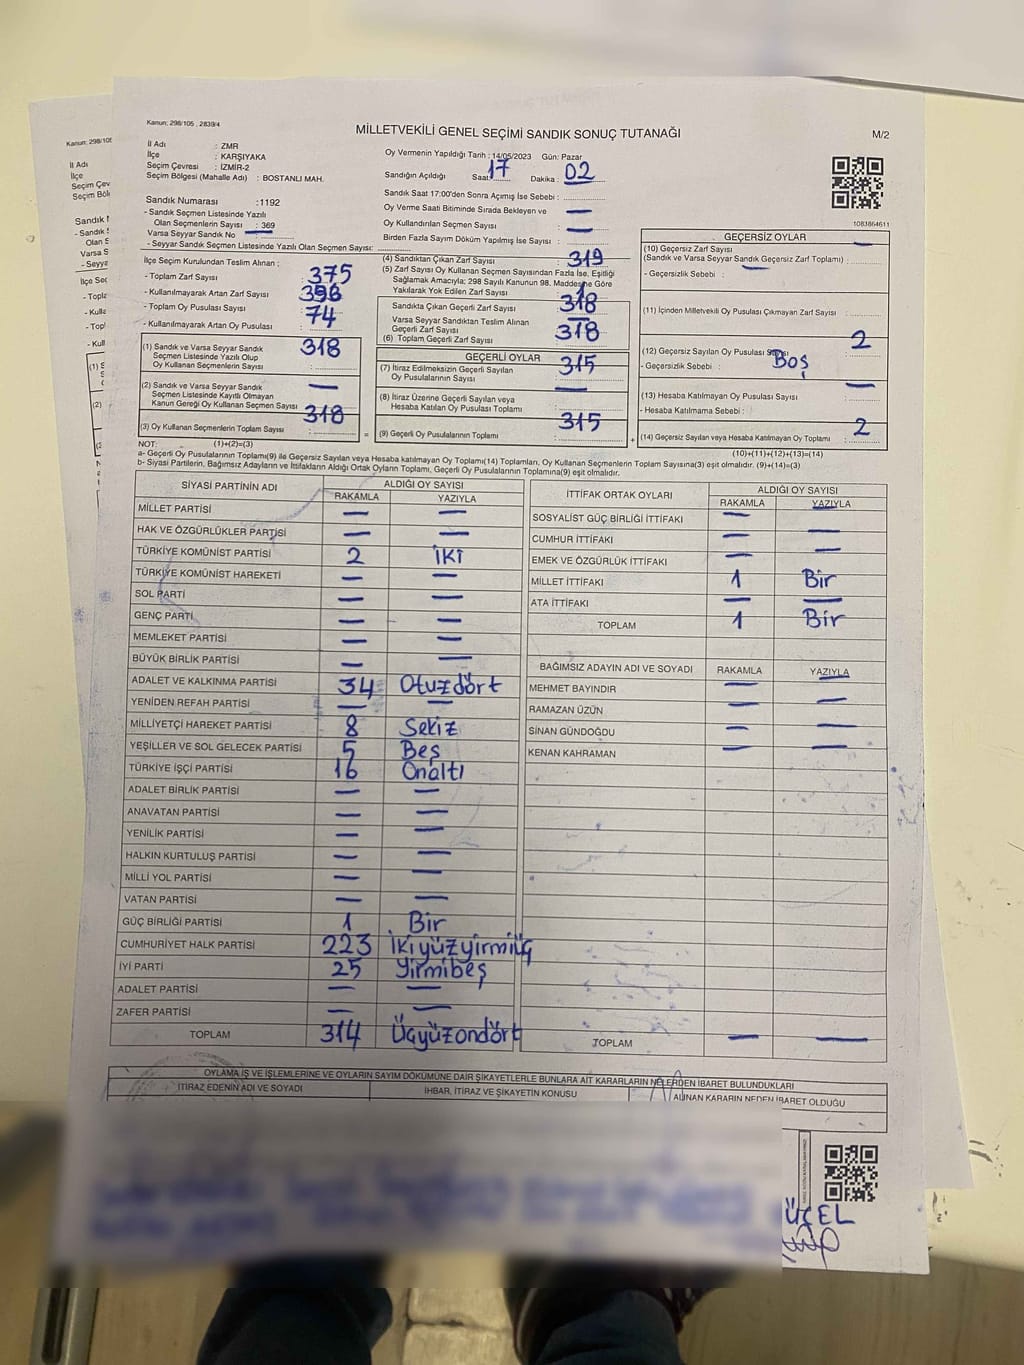 Kanun: 298/105 , 2839/4
MİLLETVEKİLİ GENEL SEÇİMİ SANDIK SONUÇ TUTANAĞI
M/2
İl Adı : İZMİR
İlçe : KARŞIYAKA
Seçim Çevresi : İZMİR-2
Seçim Bölgesi (Mahalle Adı) : BOSTANLI MAH.
Sandık Numarası :1192
- Sandık Seçmen Listesinde Yazılı
Olan Seçmenlerin Sayısı : 369
Varsa Seyyar Sandık No —
- Seyyar Sandık Seçmen Listesinde Yazılı Olan Seçmen Sayısı:
İlçe Seçim Kurulundan Teslim Alınan :
- Toplam Zarf Sayısı 375
- Kullanılmayarak Artan Zarf Sayısı
- Toplam Oy Pusulası Sayısı
- Kullanılmayarak Artan Oy Pusulası 74
(1) Sandık ve Varsa Seyyar Sandık
Seçmen Listesinde Yazılı Olup
Oy Kullanan Seçmenlerin Sayısı 318
(2) Sandık ve Varsa Seyyar Sandık
Seçmen Listesinde Kayıtlı Olmayan
Kanun Gereği Oy Kullanan Seçmen Sayısı —
(3) Oy Kullanan Seçmenlerin Toplam Sayısı : 318
Oy Vermenin Yapıldığı Tarih : 14/05/2023 Gün: Pazar
Sandığın Açıldığı Saat : 17 Dakika : 02
Sandık Saat 17:00'den Sonra Açımış İse Sebebi :
Oy Verme Saati Bitiminde Sırada Bekleyen ve —
Oy Kullandırılan Seçmen Sayısı —
Birden Fazla Sayım Döküm Yapılmış İse Sayısı :
(4) Sandıktan Çıkan Zarf Sayısı 319
(5) Zarf Sayısı Oy Kullanan Seçmen Sayısından Fazla İse, Eşitliği
Sağlamak Amacıyla; 298 Sayılı Kanunun 98. Maddesine Göre
Yakılarak Yok Edilen Zarf Sayısı 1
Sandıkta Çıkan Geçerli Zarf Sayısı 318
Varsa Seyyar Sandıktan Teslim Alınan
Geçerli Zarf Sayısı —
(6) Toplam Geçerli Zarf Sayısı 318
GEÇERLİ OYLAR
(7) İtiraz Edilmeksizin Geçerli Sayılan
Oy Pusulalarının Sayısı 315
(8) İtiraz Üzerine Geçerli Sayılan veya
Hesaba Katılan Oy Pusulaları Toplamı —
(9) Geçerli Oy Pusulalarının Toplamı 315
1083864611
GEÇERSİZ OYLAR
(10) Geçersiz Zarf Sayısı
(Sandık ve Varsa Seyyar Sandık Geçersiz Zarf Toplamı) : —
- Geçersizlik Sebebi : —
(11) İçinden Milletvekili Oy Pusulası Çıkmayan Zarf Sayısı :
(12) Geçersiz Sayılan Oy Pusulası Sayısı : 2
- Geçersizlik Sebebi : Boş
(13) Hesaba Katılmayan Oy Pusulası Sayısı : —
- Hesaba Katılmama Sebebi :
(14) Geçersiz Sayılan veya Hesaba Katılmayan Oy Toplamı : 2
NOT: (1)+(2)=(3)
(10)+(11)+(12)+(13)=(14)
a- Geçerli Oy Pusulalarının Toplamı(9) ile Geçersiz Sayılan veya Hesaba katılmayan Oy Toplamı(14) Toplamları, Oy Kullanan Seçmenlerin Toplam Sayısına(3) eşit olmalıdır. (9)+(14)=(3)
b- Siyasi Partilerin, Bağımsız Adayların ve İttifakların Aldığı Ortak Oyların Toplamı, Geçerli Oy Pusulalarının Toplamına(9) eşit olmalıdır.
SİYASİ PARTİNİN ADI ALDIĞI OY SAYISI
RAKAMLA YAZIYLA
MİLLET PARTİSİ — —
HAK VE ÖZGÜRLÜKLER PARTİSİ — —
TÜRKİYE KOMÜNİST PARTİSİ 2 İki
TÜRKİYE KOMÜNİST HAREKETİ — —
SOL PARTİ — —
GENÇ PARTİ — —
MEMLEKET PARTİSİ — —
BÜYÜK BİRLİK PARTİSİ — —
ADALET VE KALKINMA PARTİSİ 34 Otuzdört
YENİDEN REFAH PARTİSİ — —
MİLLİYETÇİ HAREKET PARTİSİ 8 Sekiz
YEŞİLLER VE SOL GELECEK PARTİSİ 5 Beş
TÜRKİYE İŞÇİ PARTİSİ 16 Onaltı
ADALET BİRLİK PARTİSİ — —
ANAVATAN PARTİSİ — —
YENİLİK PARTİSİ — —
HALKIN KURTULUŞ PARTİSİ — —
MİLLİ YOL PARTİSİ — —
VATAN PARTİSİ — —
GÜÇ BİRLİĞİ PARTİSİ 1 Bir
CUMHURİYET HALK PARTİSİ 223 İkiyüzyirmiüç
İYİ PARTİ 25 Yirmibeş
ADALET PARTİSİ — —
ZAFER PARTİSİ — —
TOPLAM 314 Üçyüzondört
İTTİFAK ORTAK OYLARI ALDIĞI OY SAYISI
RAKAMLA YAZIYLA
SOSYALİST GÜÇ BİRLİĞİ İTTİFAKI — —
CUMHUR İTTİFAKI — —
EMEK VE ÖZGÜRLÜK İTTİFAKI — —
MİLLET İTTİFAKI 1 Bir
ATA İTTİFAKI — —
TOPLAM 1 Bir
BAĞIMSIZ ADAYIN ADI VE SOYADI RAKAMLA YAZIYLA
MEHMET BAYINDIR — —
RAMAZAN ÜZÜN — —
SİNAN GÜNDOĞDU — —
KENAN KAHRAMAN — —
TOPLAM — —
OYLAMA İŞ VE İŞLEMLERİNE VE OYLARIN SAYIM DÖKÜMÜNE DAİR ŞİKAYETLERLE BUNLARA AİT KARARLARIN NELERDEN İBARET BULUNDUKLARI
İTİRAZ EDENİN ADI VE SOYADI İHBAR, İTİRAZ VE ŞİKAYETİN KONUSU ALINAN KARARIN NEDEN İBARET OLDUĞU